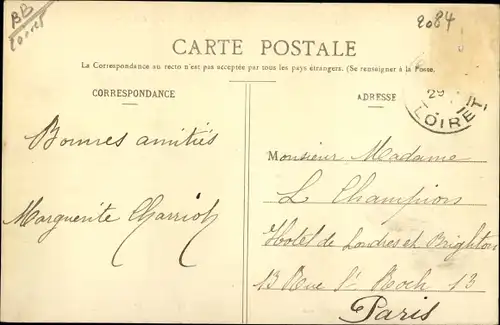 BB
Loiret
2084
CARTE POSTALE
La Correspondance au recto n'est pas acceptée par tous les pays étrangers. (Se renseigner à la Poste.
CORRESPONDANCE
ADRESSE
29
LOIRET
Bonnes amitiés
Marguerite Charriot
Monsieur Madame
L Champion
Hotel de Londres et Brighton
13 Rue St Roch 13
Paris